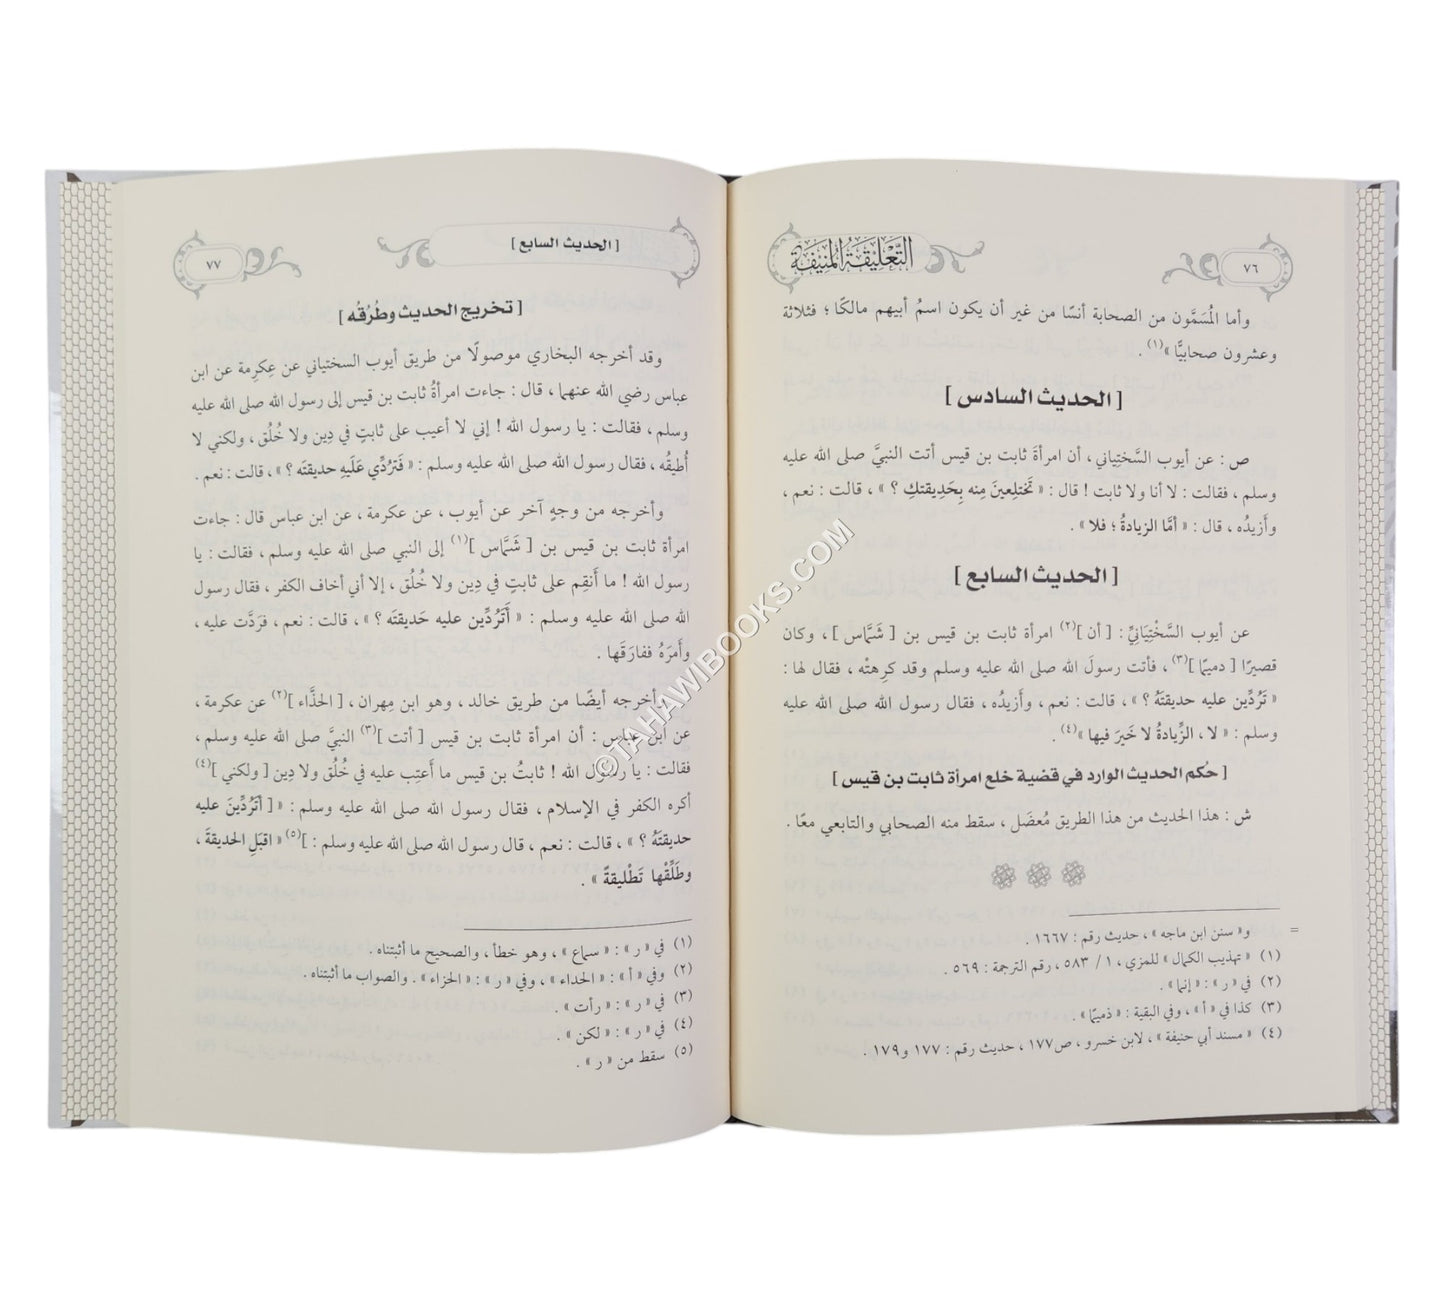 ٧٦
التَّعليقَةُ المُنِيفَة
وأما المُسَمَّون من الصحابة أنسًا من غير أن يكون اسمُ أبيهم مالكًا ؛ فثلاثة
وعشرون صحابيًّا »(١) .
[ الحديث السادس ]
ص : عن أيوب السَّختِياني ، أن امرأةَ ثابت بن قيس أتت النبيَّ صلى الله عليه
وسلم ، فقالت : لا أنا ولا ثابت ! قال : « تَختلِعينَ مِنه بِحَدِيقتكِ ؟ » ، قالت : نعم ،
وأَزيدُه ، قال : « أمَّا الزيادةُ ؛ فلا » .
[ الحديث السابع ]
عن أيوب السَّخْتِيَانِيِّ : [ أن ](٢) امرأة ثابت بن قيس بن [ شَمَّاس ] ، وكان
قصيرًا [ دميمًا ](٣) ، فأتت رسولَ الله صلى الله عليه وسلم وقد كرِهتْه ، فقال لها :
« تَرُدِّين عليه حديقتَهُ ؟ » ، قالت : نعم ، وأَزيدُه ، فقال رسول الله صلى الله عليه
وسلم : « لا ، الزِّيادةُ لا خَيرَ فيها »(٤) .
[ حُكم الحديث الوارد في قضية خلع امرأة ثابت بن قيس ]
ش : هذا الحديث من هذا الطريق مُعضَل ، سقط منه الصحابي والتابعي معًا .
= و« سنن ابن ماجه » ، حديث رقم : ١٦٦٧ .
(١) « تهذيب الكمال » للمزي ، ١ / ٥٨٣ ، رقم الترجمة : ٥٦٩ .
(٢) في « ر » : « إنما » .
(٣) كذا في « أ » ، وفي البقية : « ذميمًا » .
(٤) « مسند أبي حنيفة » ، لابن خسرو ، ص١٧٧ ، حديث رقم : ١٧٧ و١٧٩ .
[ الحديث السابع ]
٧٧
[ تخريج الحديث وطُرُقُه ]
وقد أخرجه البخاري موصولًا من طريق أيوب السختياني عن عِكرِمة عن ابن
عباس رضي الله عنهما ، قال : جاءت امرأةُ ثابت بن قيس إلى رسول الله صلى الله عليه
وسلم ، فقالت : يا رسول الله ! إني لا أعيب على ثابتٍ في دِين ولا خُلُق ، ولكني لا
أُطيقُه ، فقال رسول الله صلى الله عليه وسلم : « فَترُدِّي عَلَيهِ حديقته ؟ » ، قالت : نعم .
وأخرجه من وجهٍ آخر عن أيوب ، عن عكرمة ، عن ابن عباس قال : جاءت
امرأة ثابت بن قيس بن [ شَمَّاس ](١) إلى النبي صلى الله عليه وسلم ، فقالت : يا
رسول الله ! ما أَنقِم على ثابتٍ في دِين ولا خُلُق ، إلا أني أخاف الكفر ، فقال رسول
الله صلى الله عليه وسلم : « أَتَرُدِّين عليه حَديقتَه ؟ » ، قالت : نعم ، فرَدَّت عليه ،
وأَمرَهُ ففارَقَها .
وأخرجه أيضًا من طريق خالد ، وهو ابن مِهران ، [ الحذَّاء ](٢) عن عكرمة ،
عن ابن عباس : أن امرأة ثابت بن قيس [ أتت ](٣) النبيَّ صلى الله عليه وسلم ،
فقالت : يا رسول الله ! ثابتُ بن قيس ما أَعتِب عليه في خُلُق ولا دِين [ ولكني ](٤)
أكره الكفر في الإسلام ، فقال رسول الله صلى الله عليه وسلم : « [ أتَرُدِّينَ عليه
حديقتَهُ ؟ » ، قالت : نعم ، قال رسول الله صلى الله عليه وسلم : ](٥) « اقبَلِ الحديقةَ ،
وطَلِّقْها تَطْليقةً » .
(١) في « ر » : « سماع » ، وهو خطأ ، والصحيح ما أثبتناه .
(٢) وفي « أ » : « الحداء » ، وفي « ر » : « الحزاء » . والصواب ما أثبتناه .
(٣) في « ر » : « رأت » .
(٤) في « ر » : « لكن » .
(٥) سقط من « ر » .
©TAHAWIBOOKS.COM